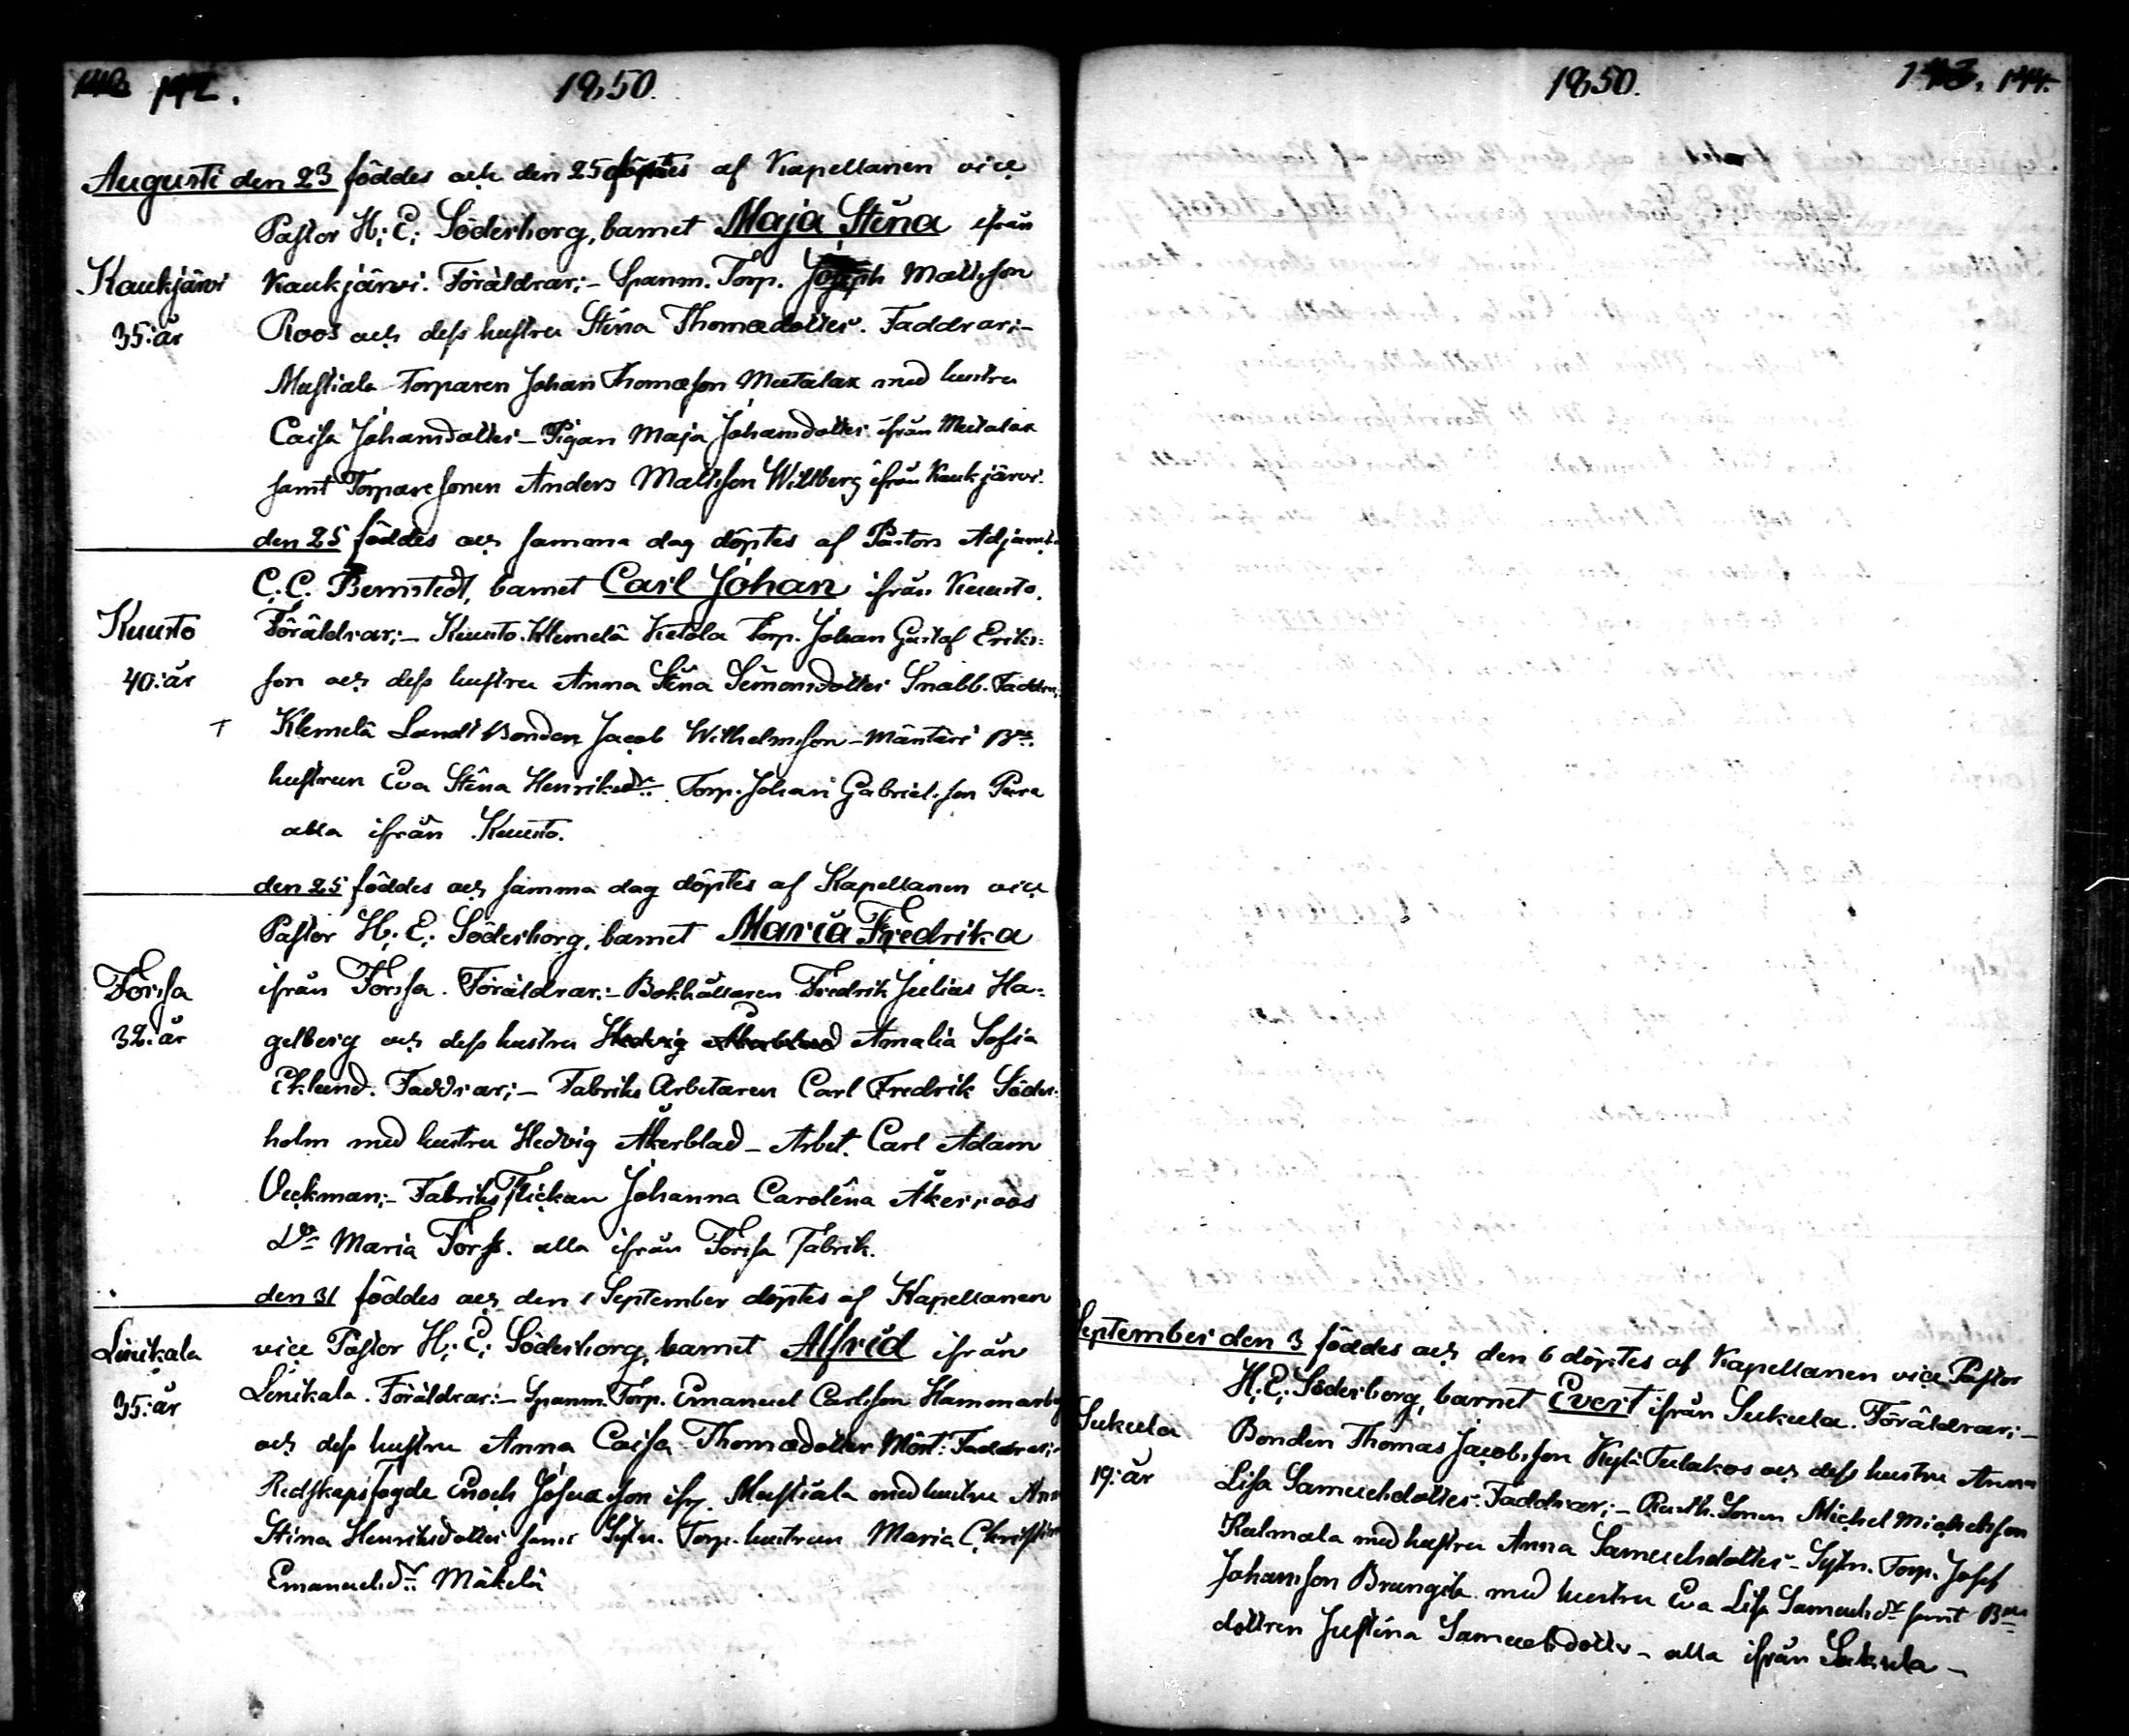 142.
1850.
Augusti den 23 föddes och den 25 döptes af Kapellanen vice
Pastor H: E: Söderborg, barnet Maja Stina ifrån
Kaukjärvi Kaukjärvi. Föräldrar;- Spanm. Torp. Joseph Matsson
35: år Roos och dess hustru Stina Thomædotter. Faddrar;-
Mustiala Torparen Johan Thomæson Mutalax med hustru
Caisa Johansdotter - Pigan Maja Johansdotter ifrån Mutalax
samt Torpare sonen Anders Mattsson Willberg ifrån Kaukjärvi.
den 25 föddes och samma dag döptes af Pastors Adjunct
C: C. Bernstedt, barnet Carl Johan ifrån Kuusto.
Kuusto Föräldrar;- Kuusto Klemelä Ketola Torp. Johan Gustaf Eriks:
40: år son och dess hustru Anna Stina Simonsdotter Snabb. Faddrar;
Klemelä Landt Bonden Jacob Wilhelmsson - Mäntäri Bds
hustrun Eva Stina Henriksdr. Torp. Johan Gabrielsson Para
alla ifrån Kuusto.
den 25 föddes och samma dag döptes af Kapellanen vice
Pastor H: E: Söderborg, barnet Maria Fredrika
Forssa ifrån Forssa. Föräldrar:- Bokhållaren Fredrik Julius Ha-
32: år gelberg och dess hustru Hedvig Åkerblad Amalia Sofia
Eklund. Faddrar;- Fabriks Arbetaren Carl Fredrik Söder-
holm med hustru Hedvig Åkerblad - Arbet. Carl Adam
Veckman;- Fabriks Flickan Johanna Carolina Åkerroos
Do Maria Forss. alla ifrån Forssa Fabrik.
den 31 föddes och den 1 September döptes af Kapellanen
Linikala vice Pastor H: E: Söderborg, barnet Alfrid ifrån
35: år Linikala. Föräldrar:- Spanm. Torp. Emanuel Carlsson Hammarberg
och dess hustru Anna Caisa Thomædotter Mört: Faddrar;-
Redskapsfogde Enoch Josuason ifr. Mustiala med hustru Anna
Stina Henriksdotter samt Sytn. Torp. hustrun Maria Christina
Emanuelsdr. Mäkelä
1850.
144.
September den 3 föddes och den 6 döptes af Kapellanen vice Pastor
H: E: Söderborg, barnet Evert ifrån Sukula. Föräldrar;-
Sukula Bonden Thomas Jacobsson Kylä Tulakos och dess hustru Anna
19: år Lisa Samuelsdotter. Faddrar;- Rusth. Sonen Michel Michelsson
Kulmala med hustru Anna Samuelsdotter - Sytn. Torp. Josef
Johansson Brungila med hustru Eva Lisa Samuelsdr. samt Bds
dottren Justina Samuelsdotter - alla ifrån Sukula -